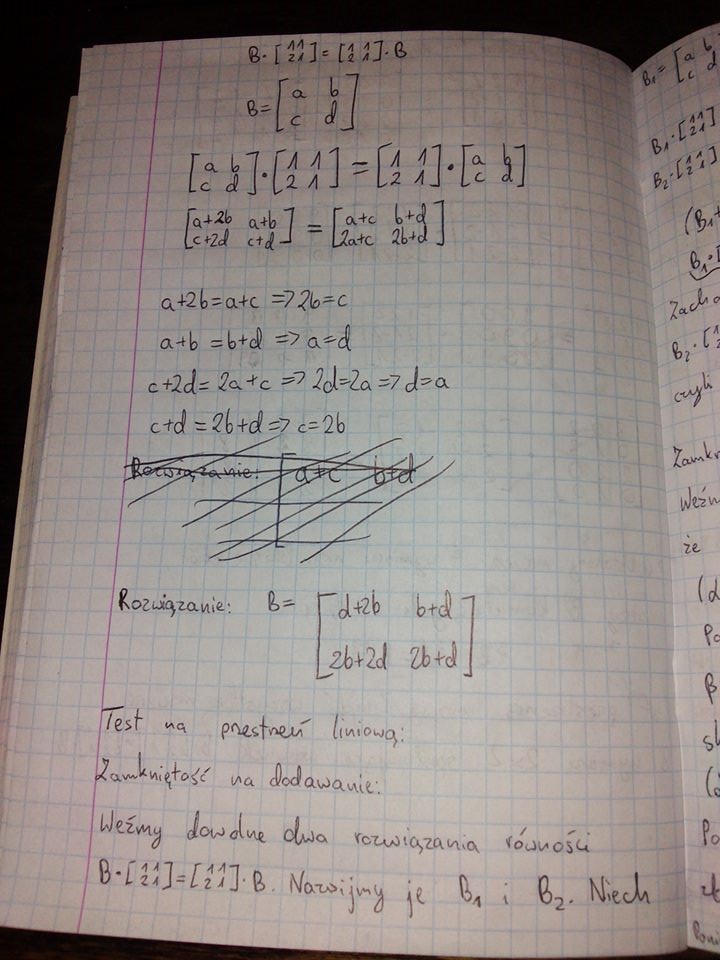 B·[1 1 2 1]=[1 1 2 1]·B
B=[a b c d]
[a b c d]·[1 1 2 1]=[1 1 2 1]·[a b c d]
[a+2b a+b c+2d c+d]=[a+c b+d 2a+c 2b+d]
a+2b=a+c =>2b=c
a+b=b+d => a=d
c+2d=2a+c => 2d=2a => d=a
c+d=2b+d => c=2b
Rozwiązanie: [a+c b+d
Rozwiązanie: B=[d+2b b+d
2b+2d 2b+d]
Test na przestrzeń liniową:
Zamkniętość na dodawanie:
Weźmy dowolne dwa rozwiązania równości
B·[1 1 2 1]=[1 1 2 1]·B. Nazwijmy je B₁ i B₂. Niech
B₁=[a b
c d
B₁·[1 1 2 1]
B₂·[1 1 2 1]
(B₁+
B₁·[
B₂·[1
czyli
Weźm
że
(d